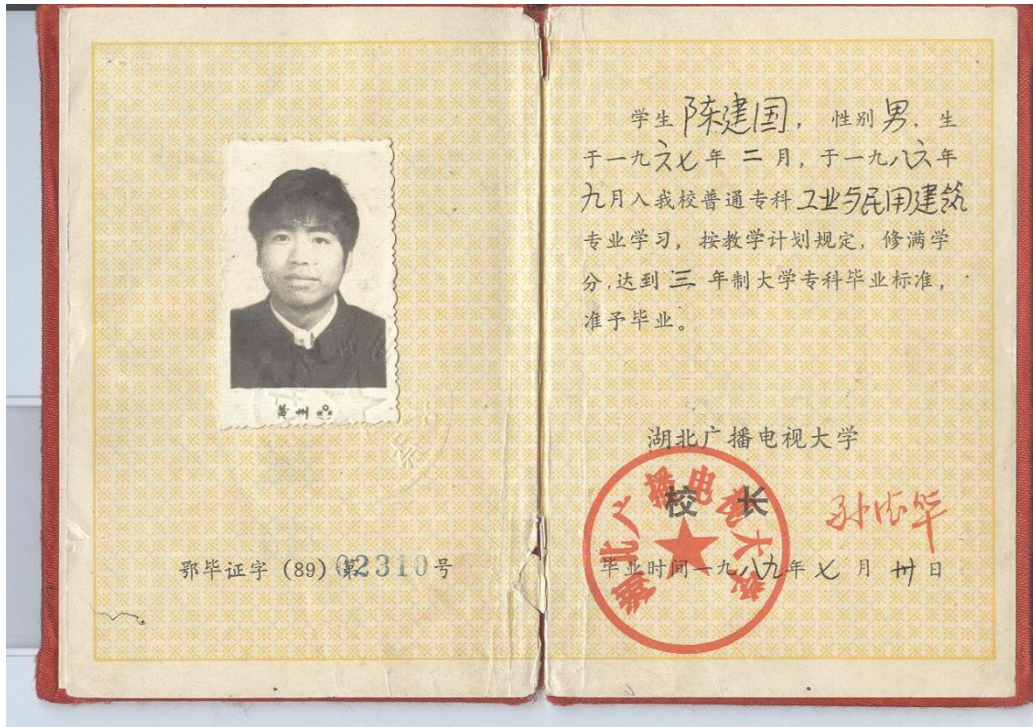 黄州
鄂毕证字 (89) 第02310号
学生 陈建国, 性别 男, 生
于一九六七年 二 月, 于一九八六年
九月入我校普通专科 工业与民用建筑
专业学习, 按教学计划规定, 修满学
分, 达到 三 年制大学专科毕业标准,
准予毕业。
湖北广播电视大学
校 长
湖北广播电视大学
毕业时间一九八九年 七 月 卅 日